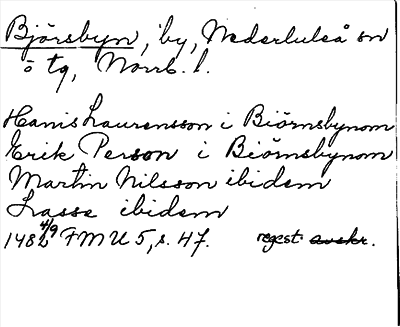 Björsbyn, by, Nederluleå sn
ö tg, Norrb. l.
Hanis Laurensson i Biörnsbynom
Erik Person i Biörnsbynom
Martin Nilsson ibidem
Lasse ibidem
1482 4/9 FMU 5, s. 47. regest. avskr.